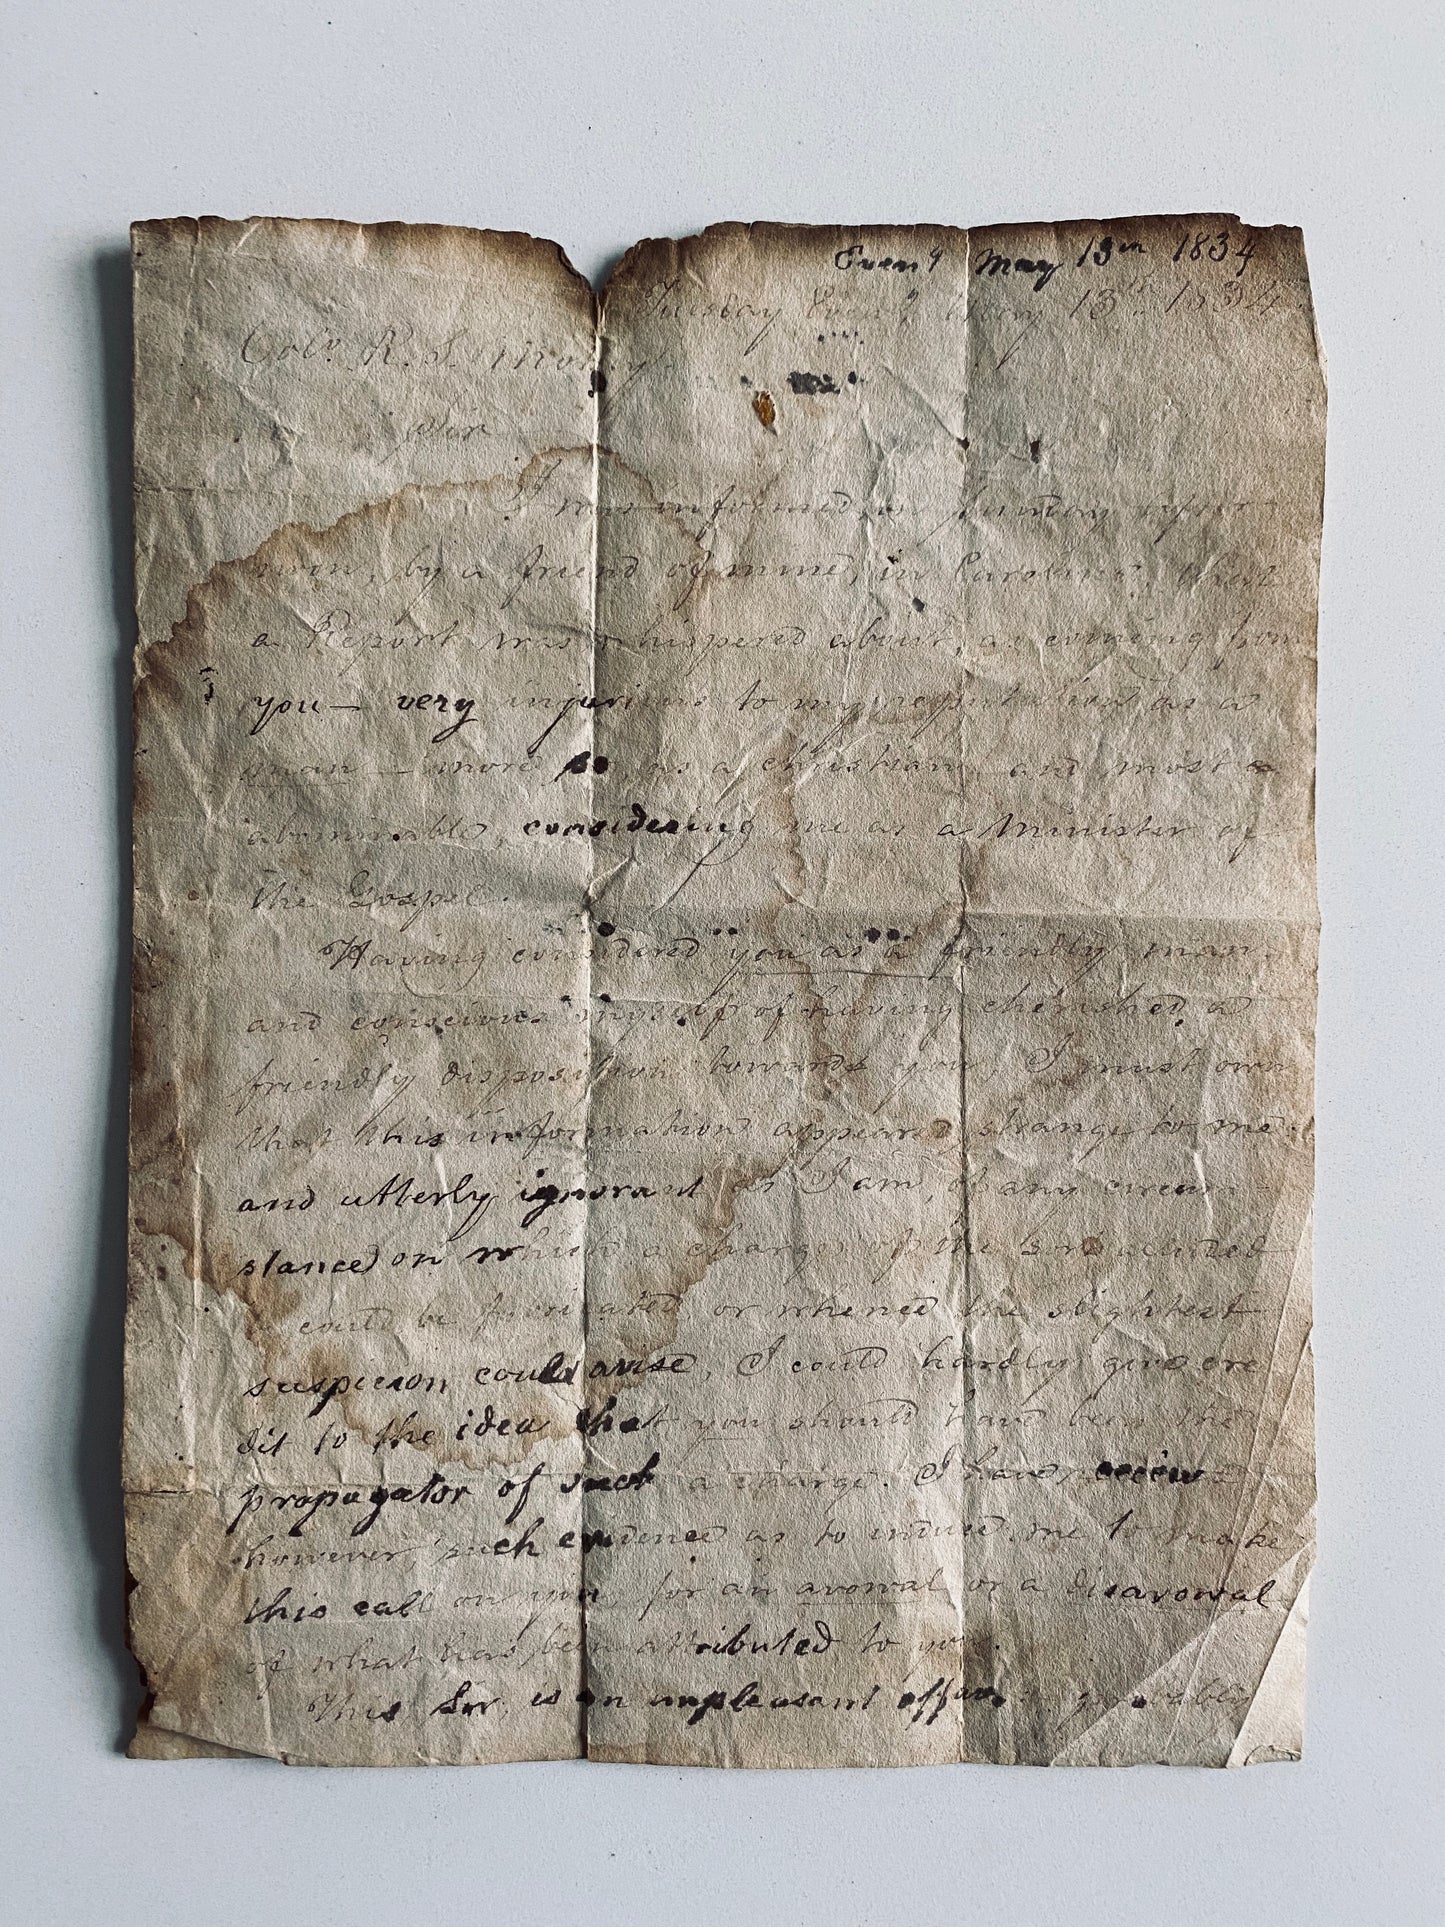 Even g May 13th 1834
Tuesday Even g May 13th 1834
Colo. R. S.
Sir
I was informed, on Sunday after-
noon, by a friend of mine, in Carolina, that
a Report was whispered about, as coming from
you — very injurious to my reputation as a
man — more so, as a christian, and most
abominable, considering me as a Minister of
the Gospel.
Having considered you as a friendly man,
and conscious myself of having cherished a
friendly disposition towards you, I must own
that this information appeared strange to me.
and utterly ignorant as I am, of any circum-
stance on which a charge of the
could be or whence the slightest
suspicion could arise, I could hardly give cre
dit to the idea that you should have been the
propagator of such a charge. I have received
however, such evidence as to induce me to make
this call on you, for an avowal or a disavowal
of what has been attributed to you.
This Sir, is an unpleasant affair probably